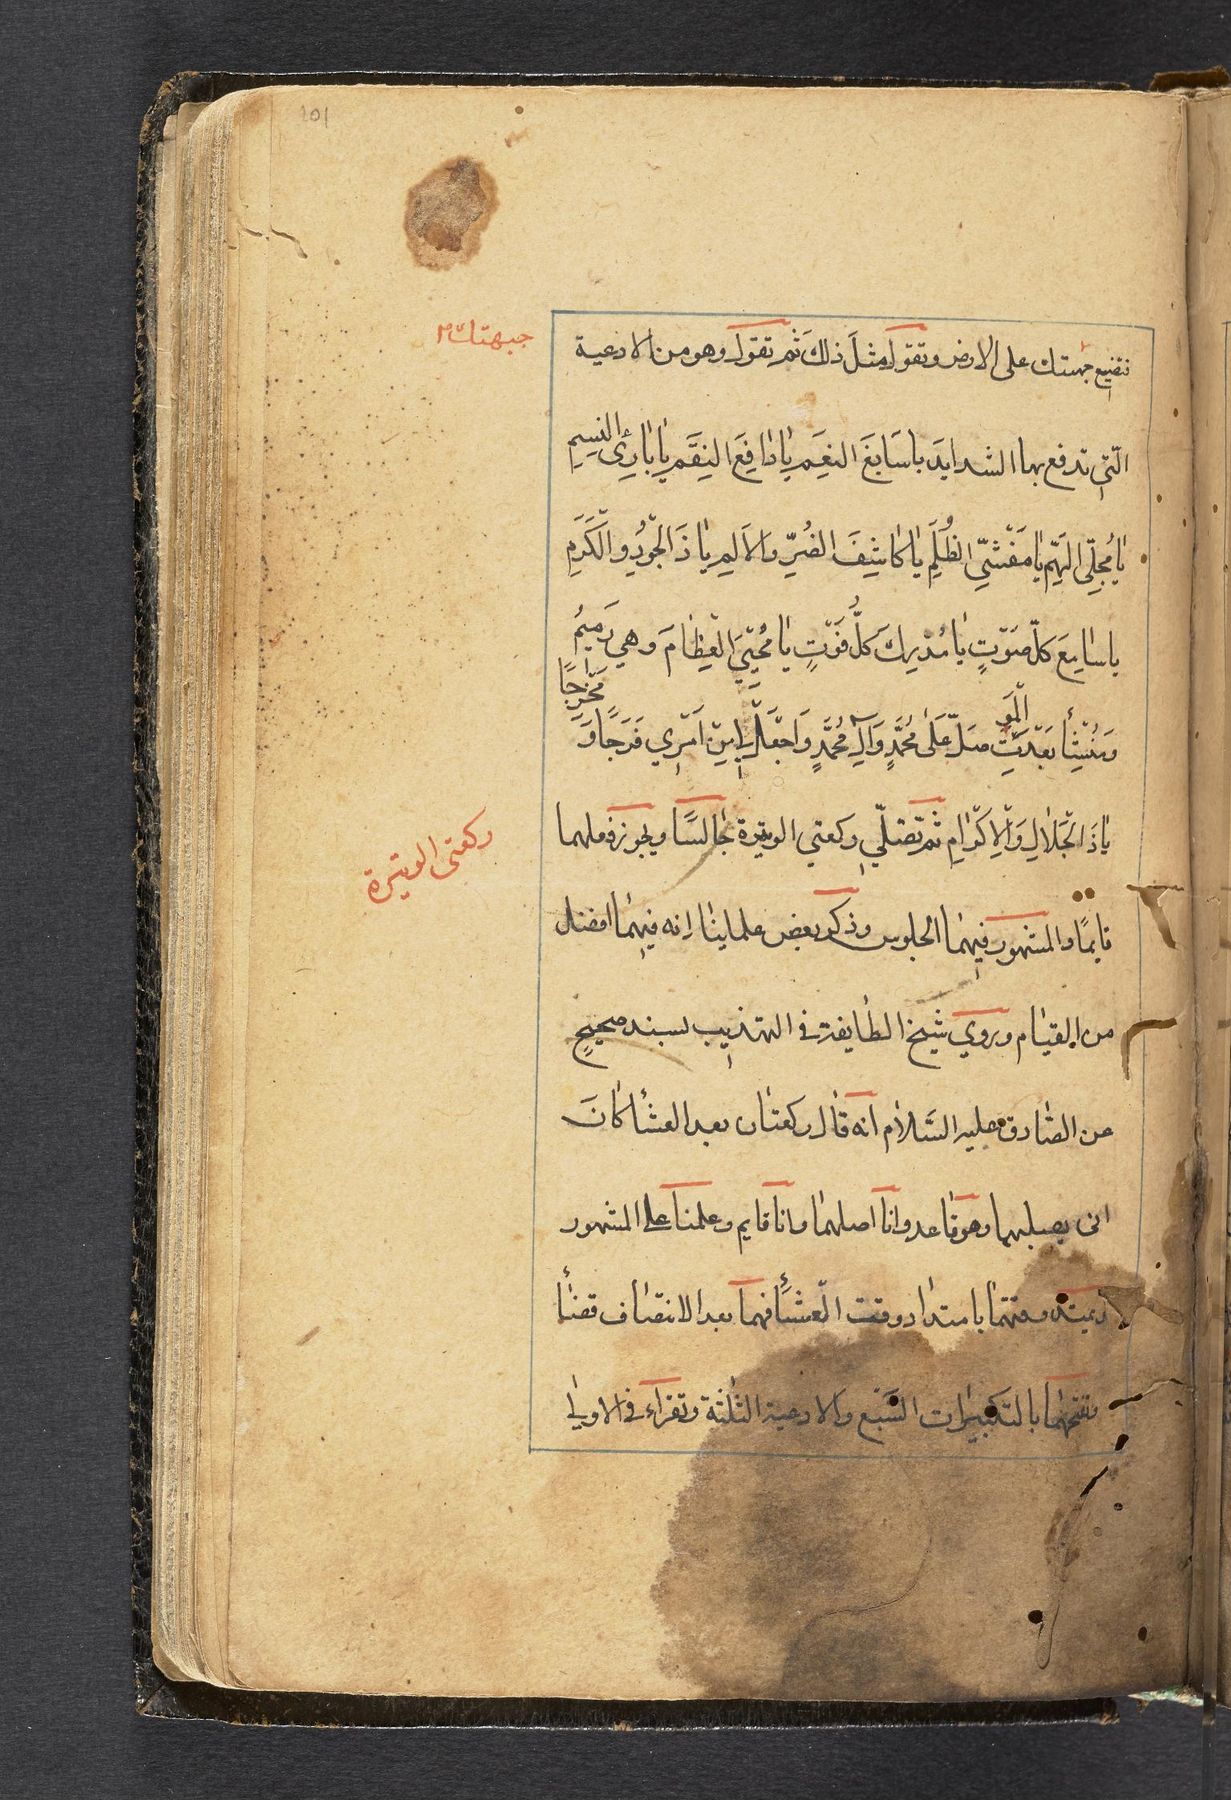 101
جبهتك
فتضع جبهتك على الارض وتقول مثل ذلك ثم تقول وهو من الادعية
الّتي تدفع بها الشدايد ياسَابغَ النِعَم يٰا دٰافِعَ النِقَم يٰا بٰارِئ النسِيمِ
يٰا مُجِلّى الهِمّ يٰا مُغَشّي الظُلَمِ يٰا كٰاشِفَ الضُرِّ والاَلَمِ يٰا ذَا الْجُوْدِ وَالْكَرَمِ
يا سٰامِعَ كلّ صَوْتٍ يٰا مُدْرِكَ كلُّ فَوْتٍ يٰا مُحْيِيَ الْعِظٰامَ وهي رَميْمُ
وَمُنْشِئٰا بَعْدَ الْمَوتِ صَلّ عَلٰى مُحَمَّدٍ وَآلِ مُحَمَّدٍ وَاجْعَلْ لِي مِنْ اَمْرِي فَرَجًا وَ مَخْرَجًا
يٰا ذَا الْجَلٰالِ وَالْاِكْرٰامِ ثمّ تصَلّي ركعتي الوتيرة جٰالسًا ويجوز فعلهما
قايمًا والمشهور فيهمٰا الجلوس وذكر بعض علماينٰا انه فيهمٰا افضل
من القيٰام وروي شيخ الطٰايفة في التهذيب بسند صحيحٍ
عن الصّٰادق عليه السَّلاٰم انه قٰال ركعتٰان بعد العشٰأ كٰانَ
ابى يصليهما وهو قٰاعد وانٰا اصليهمٰا وانٰا قايم وعلمنٰا على المشهور
ويمتد وقتهمٰا بامتدٰاد وقت الْعشٰأ فهمٰا بعد الانتصٰاف قضٰأ
وتفتحهمٰا بالتكبيرٰات السَّبْع والادعية الثلٰثة وتقرٰاء في الاولي
ركعتى الوتيرة